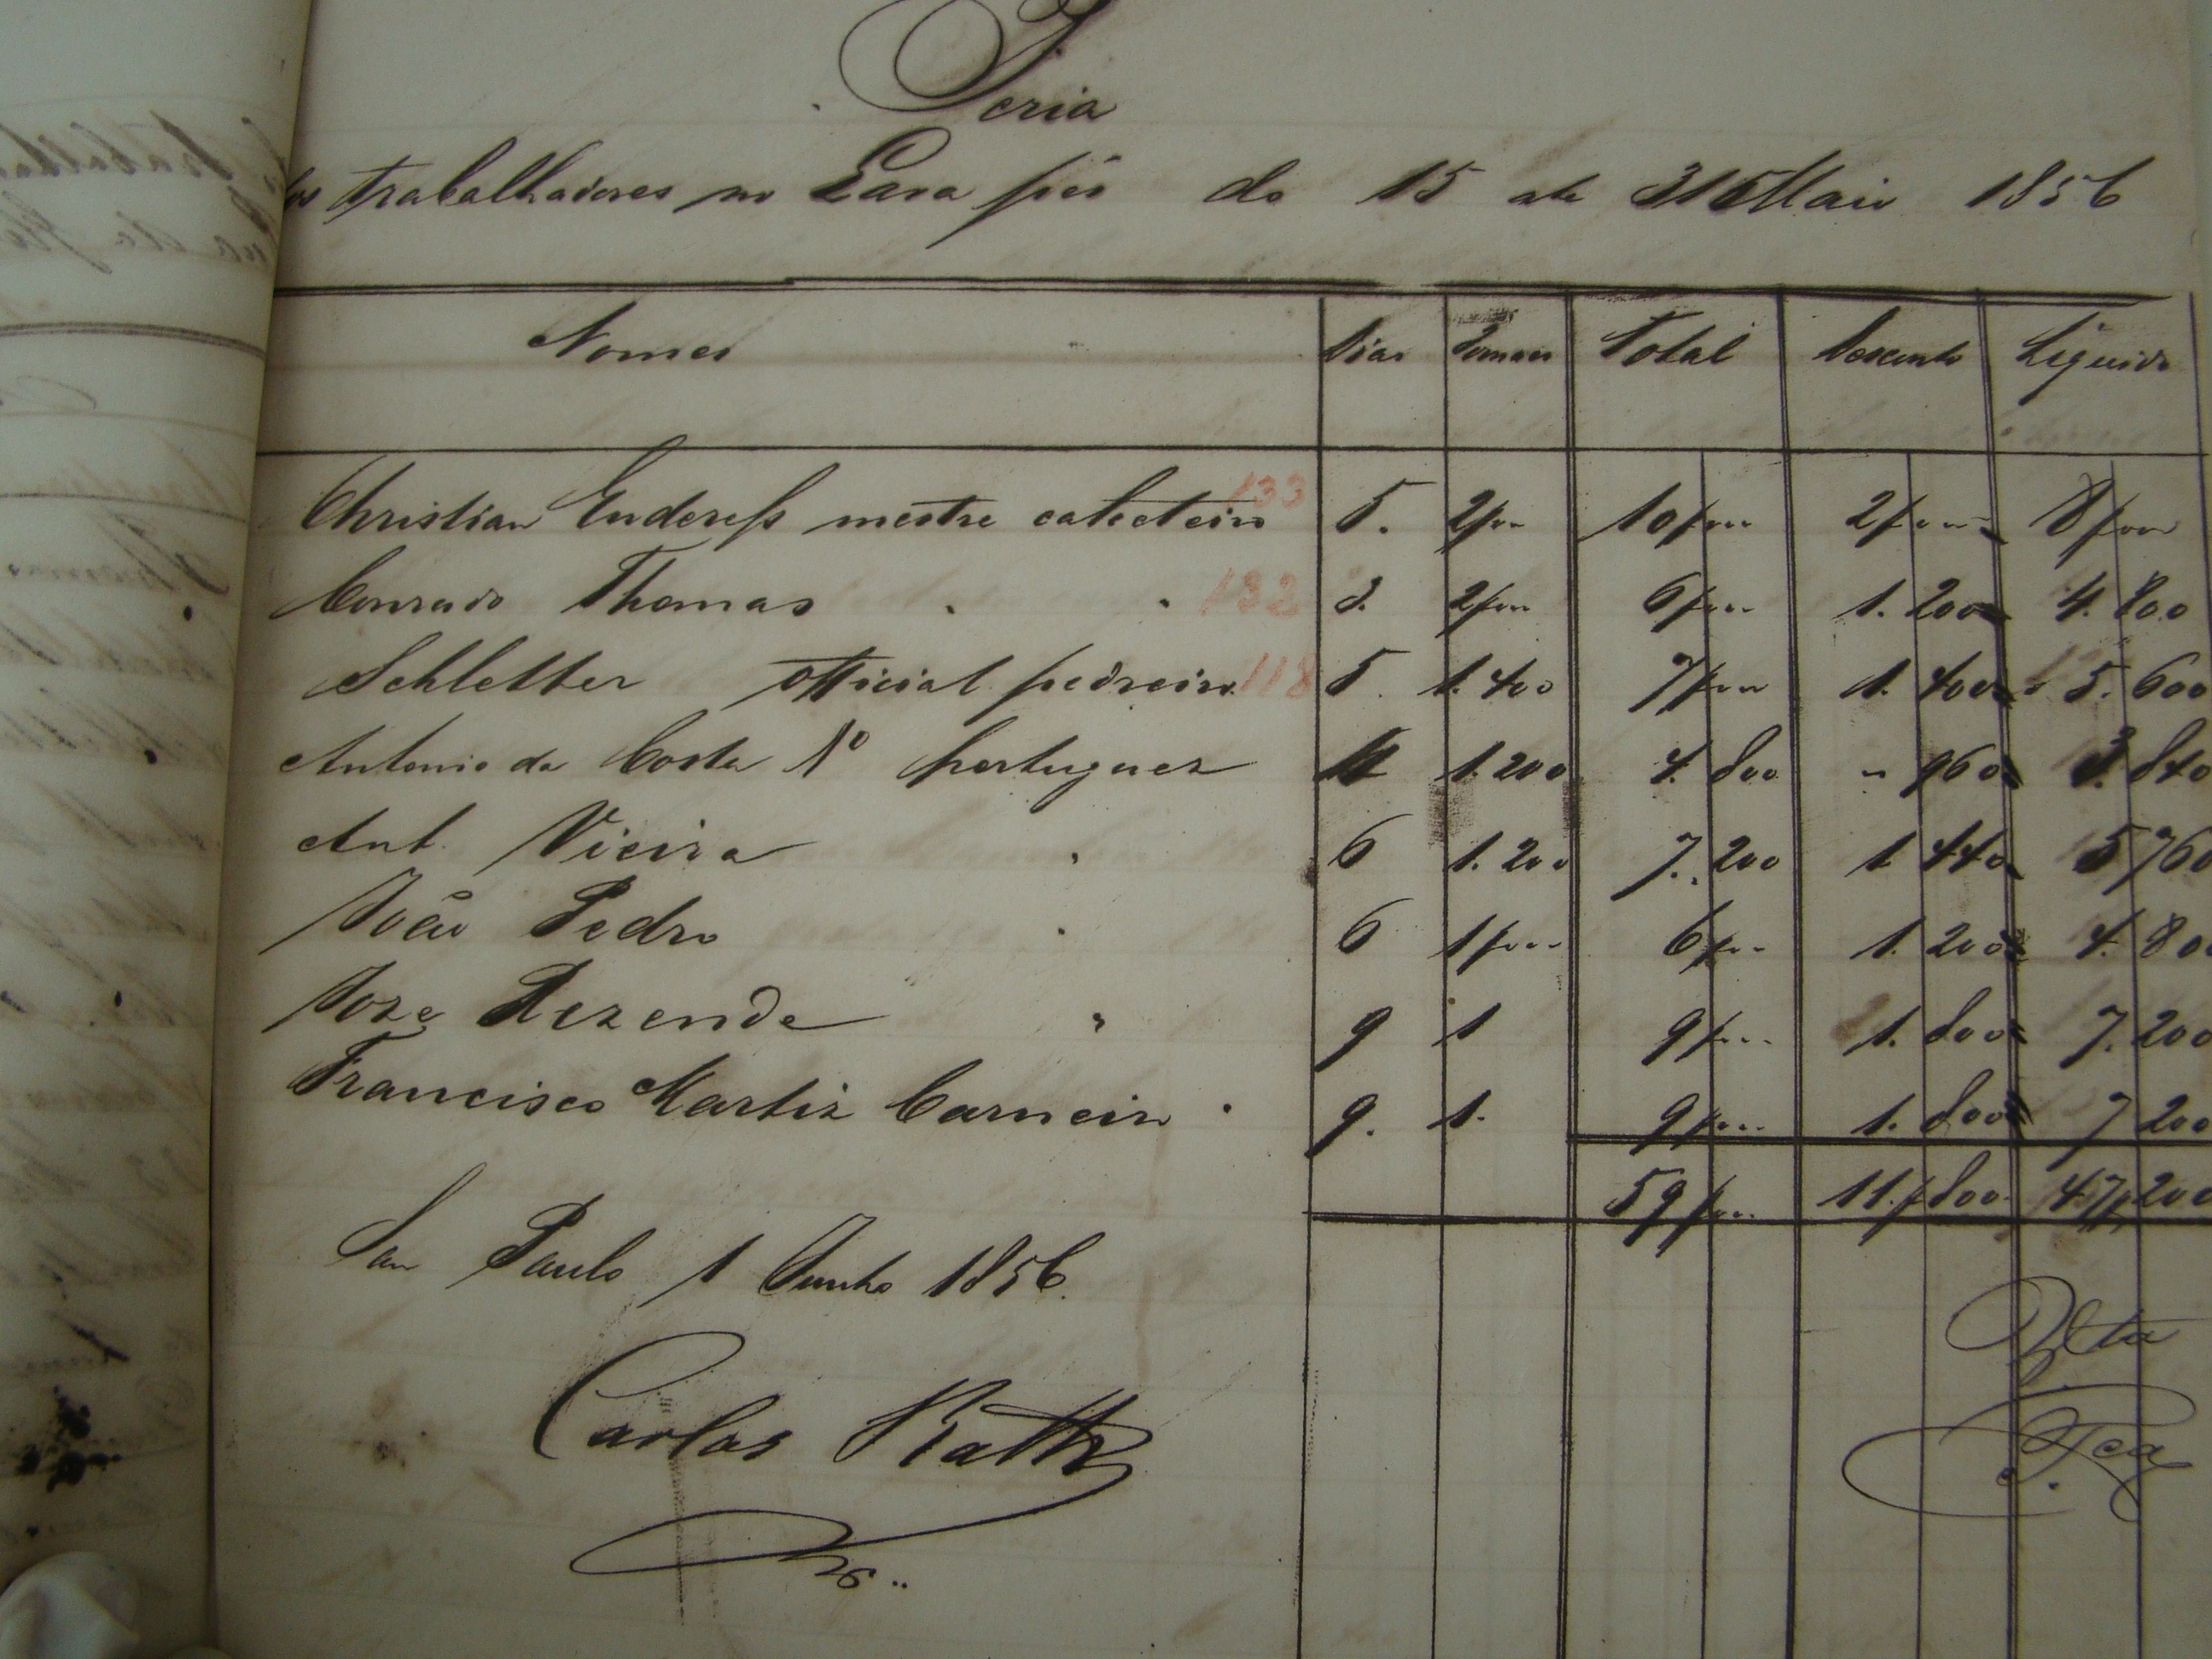 Feria
dos trabalhadores no Lava pés do 15 ate 31 Maio 1856
Nomes Dias Jornaes Total Desconto Liquido
Christian Enderess mestre calceteiro 133 5. 2$000 10$000 2$000 8$000
Conrado Thomas " " 132 3. 2$000 6$000 1.200 4.800
Schletter official pedreiro 118 5. 1.400 7$000 1.400 5.600
Antonio da Costa No portuguez 4 1.200 4.800 " 960 3.840
Ant. Vieira " 6 1.200 7.200 1 440 5 760
João Pedro " 6 1$000 6$000 1.200 4.800
Joze Rezende " 9 1 9$000 1.800 7.200
Francisco Martiz Carneiro " 9. 1. 9$000 1.800 7 200
59$000 11.$800 47$200
San Paulo 1 Junho 1856.
Carlos Rath